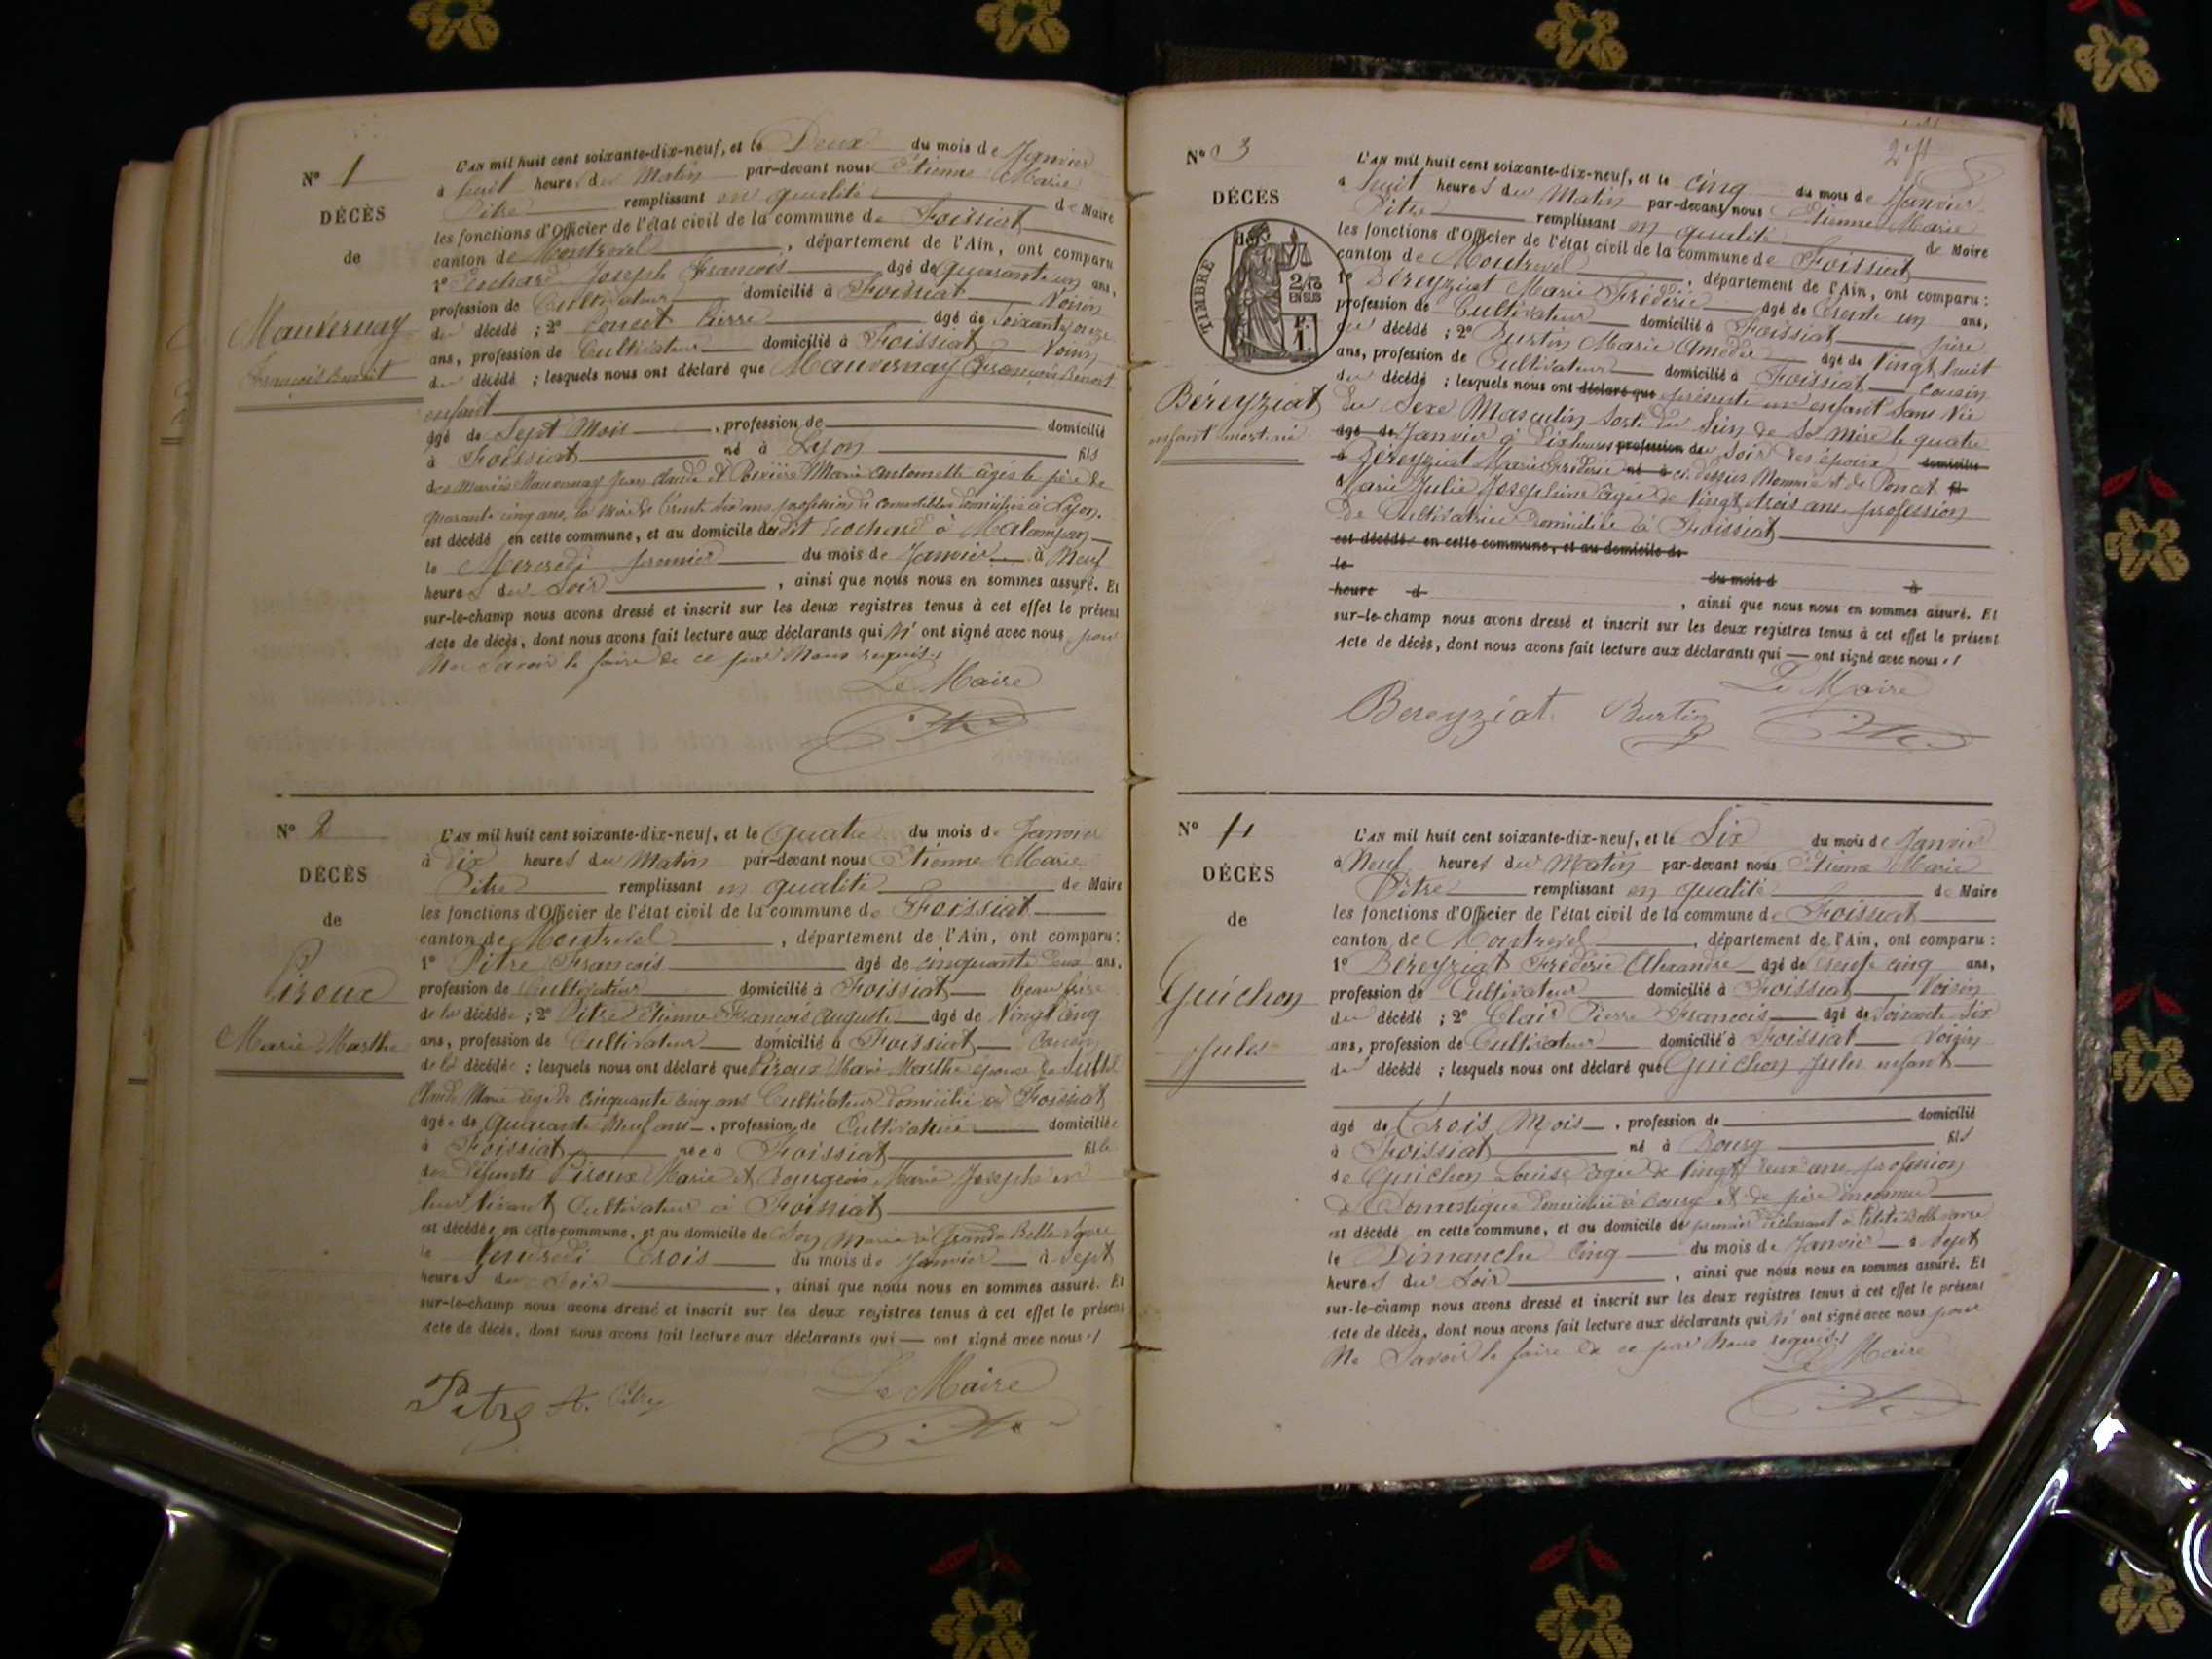 N° 1
DÉCÈS
de
Mauvernay
François Benoit
L'AN mil huit cent soixante-dix-neuf, et le Deux du mois de Janvier
à huit heures du Matin par-devant nous Etienne Marie
Pitre remplissant en qualité de Maire
les fonctions d'Officier de l'état civil de la commune de Foissiat
canton de Montrevel, département de l'Ain, ont comparu
1° Cochard Joseph François âgé de quarante un ans,
profession de Cultivateur domicilié à Foissiat Voisin
du décédé ; 2° Poncet Pierre âgé de soixante onze
ans, profession de Cultivateur domicilié à Foissiat Voisin
du décédé ; lesquels nous ont déclaré que Mauvernay François Benoit
enfant
âgé de Sept Mois, profession de domicilié
à Foissiat né à Lyon fils
des mariés Mauvernay Jean Claude et Marie antoinette âgés le père de
quarante cinq ans, la mère de trente six ans profession de comestibles domiciliés à Lyon.
est décédé en cette commune, et au domicile dudit Cochard à
le Mercredi premier du mois de Janvier à Neuf
heures du Soir, ainsi que nous nous en sommes assuré. Et
sur-le-champ nous avons dressé et inscrit sur les deux registres tenus à cet effet le présent
Acte de décès, dont nous avons fait lecture aux déclarants qui N' ont signé avec nous pour
Ne Savoir le faire de ce par Nous requis./
Le Maire
Pitre
N° 2
DÉCÈS
de
Piroux
Marie Marthe
L'AN mil huit cent soixante-dix-neuf, et le quatre du mois de Janvier
à Dix heures du Matin par-devant nous Etienne Marie
Pitre remplissant en qualité de Maire
les fonctions d'Officier de l'état civil de la commune de Foissiat
canton de Montrevel, département de l'Ain, ont comparu :
1° Pitre François âgé de cinquante Deux ans,
profession de Cultivateur domicilié à Foissiat beau frère
de la décédée ; 2° Pitre Etienne François Auguste âgé de Vingt Cinq
ans, profession de Cultivateur domicilié à Foissiat Cousin
de la décédée ; lesquels nous ont déclaré que Piroux Marie Marthe épouse de
Claude Marie âgé de cinquante cinq ans Cultivateur domicilié à Foissiat
âgée de Quarante Neuf ans, profession de Cultivatrice domiciliée
à Foissiat née à Foissiat fille
des défunts Piroux Marie et Bourgeois Marie Josephe en
leur vivant Cultivateur à Foissiat
est décédée en cette commune, et au domicile de Son Mari à Grande Belle Vavre
le Vendredi Trois du mois de Janvier à Sept
heures du Soir, ainsi que nous nous en sommes assuré. Et
sur-le-champ nous avons dressé et inscrit sur les deux registres tenus à cet effet le présent
Acte de décès, dont nous avons fait lecture aux déclarants qui — ont signé avec nous ./
Pitre A. Pitre
Le Maire
Pitre
N° 3
DÉCÈS
de
TIMBRE
2/10
EN SUS
P.
1.
Béreyziat
enfant mort-né
L'AN mil huit cent soixante-dix-neuf, et le cinq du mois de Janvier
à huit heures du Matin par-devant nous Etienne Marie
Pitre remplissant en qualité de Maire
les fonctions d'Officier de l'état civil de la commune de Foissiat
canton de Montrevel, département de l'Ain, ont comparu :
1° Béreyziat Marie Frédéric âgé de Trente un ans,
profession de Cultivateur domicilié à Foissiat père
du décédé ; 2° Burtin Marie Amédée âgé de Vingt huit
ans, profession de Cultivateur domicilié à Foissiat cousin
du décédé ; lesquels nous ont déclaré que présenté un enfant Sans Vie
du Sexe Masculin Sorti du Sein de Sa Mère le quatre
âgé de Janvier à Dix heures profession de du Soir des époux domicilié
à Béreyziat Marie Frédéric né à ci dessus Nommé et de Poncet fil
Marie Julie Josephine âgée de Vingt trois ans profession
de Cultivatrice domiciliée à Foissiat
est décédé en cette commune, et au domicile de
le du mois d à
heure d, ainsi que nous nous en sommes assuré. Et
sur-le-champ nous avons dressé et inscrit sur les deux registres tenus à cet effet le présent
Acte de décès, dont nous avons fait lecture aux déclarants qui — ont signé avec nous ./
Le Maire
Bereyziat Burtin Pitre
N° 4
DÉCÈS
de
Guichon
Jules
L'AN mil huit cent soixante-dix-neuf, et le Six du mois de Janvier
à Neuf heures du Matin par-devant nous Etienne Marie
Pitre remplissant en qualité de Maire
les fonctions d'Officier de l'état civil de la commune de Foissiat
canton de Montrevel, département de l'Ain, ont comparu :
1° Béreyziat Frédéric Alexandre âgé de trente cinq ans,
profession de Cultivateur domicilié à Foissiat Voisin
du décédé ; 2° Clair Pierre François âgé de Soixante Six
ans, profession de Cultivateur domicilié à Foissiat Voisin
du décédé ; lesquels nous ont déclaré que Guichon Jules enfant
âgé de Trois Mois, profession de domicilié
à Foissiat né à Bourg fils
de Guichon Louise âgée de Vingt deux ans profession
de Domestique domiciliée à Bourg et de père inconnu
est décédé en cette commune, et au domicile du premier déclarant à Petite Belle Vavre
le Dimanche Cinq du mois de Janvier à Sept
heures du Soir, ainsi que nous nous en sommes assuré. Et
sur-le-champ nous avons dressé et inscrit sur les deux registres tenus à cet effet le présent
Acte de décès, dont nous avons fait lecture aux déclarants qui N' ont signé avec nous pour
Ne Savoir le faire de ce par Nous requis./
Le Maire
Pitre